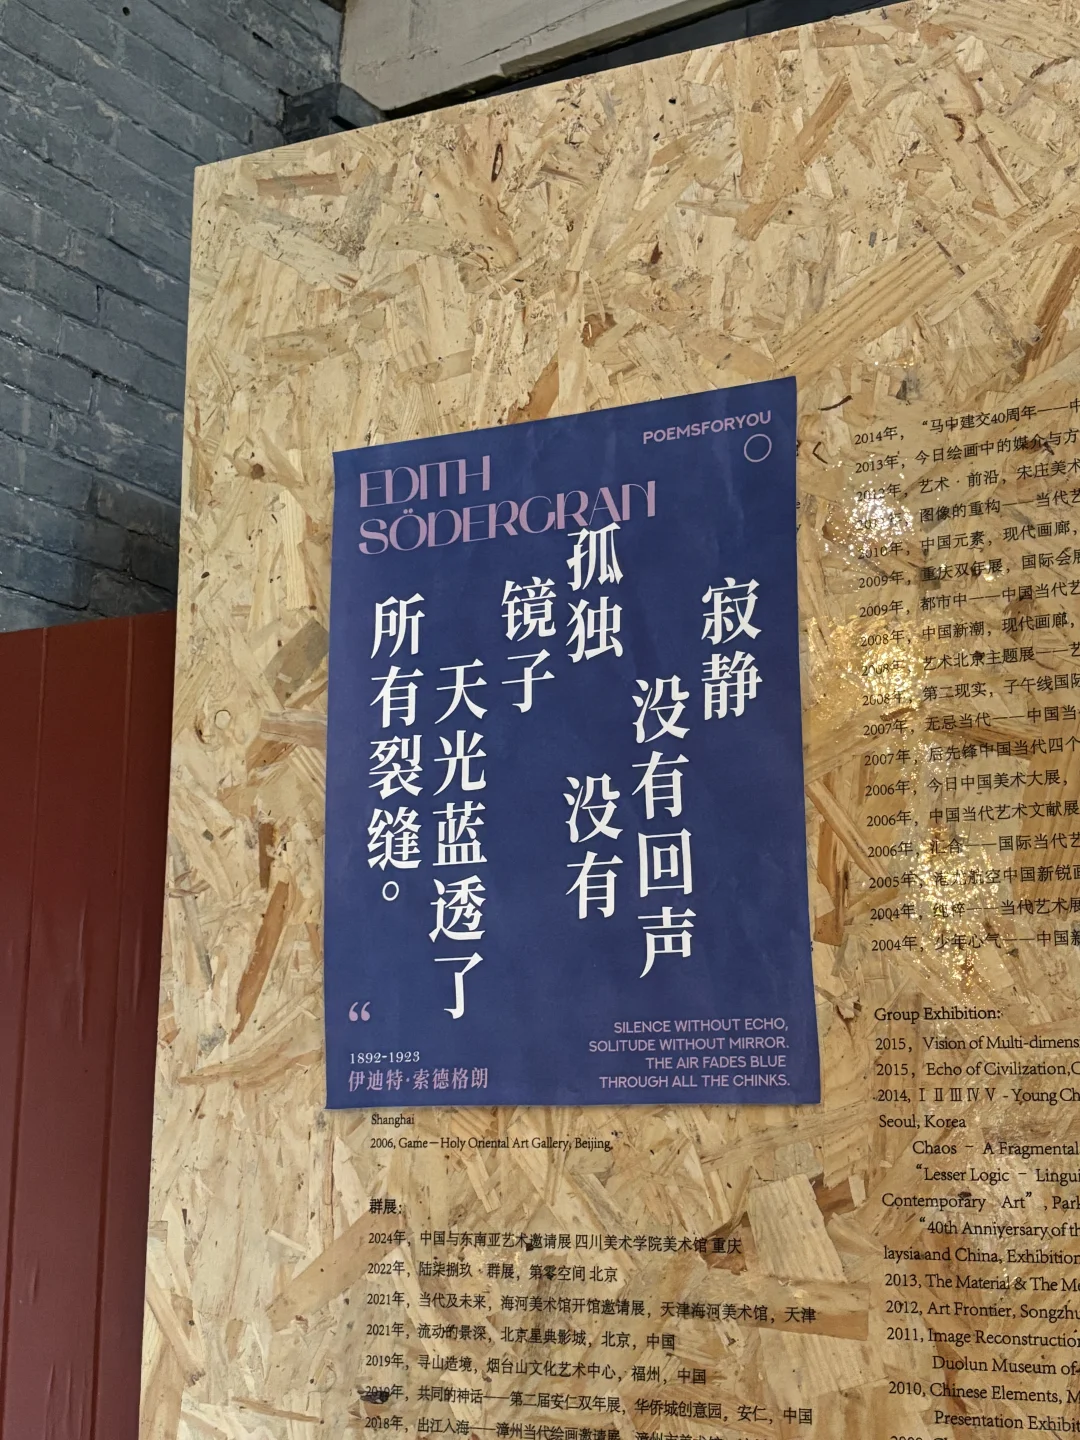 POEMSFORYOU
EDITH
SÖDERGRAN
寂静
没有回声
孤独
没有
镜子
天光蓝透了
所有裂缝。
“
1892-1923
伊迪特·索德格朗
SILENCE WITHOUT ECHO,
SOLITUDE WITHOUT MIRROR.
THE AIR FADES BLUE
THROUGH ALL THE CHINKS.
Shanghai
2006, Game—Holy Oriental Art Gallery, Beijing,
群展：
2024年，中国与东南亚艺术邀请展 四川美术学院美术馆 重庆
2022年，陆柒捌玖·群展，第零空间 北京
2021年，当代及未来，海河美术馆开馆邀请展，天津海河美术馆，天津
2021年，流动的景深，北京星典影城，北京，中国
2019年，寻山造境，烟台山文化艺术中心，福州，中国
2019年，共同的神话——第二届安仁双年展，华侨城创意园，安仁，中国
2018年，出江入海——漳州当代绘画邀请展，漳州市美术馆
2014年，“马中建交40周年——中
2013年，今日绘画中的媒介与方
2012年，艺术·前沿，宋庄美术
图像的重构——当代艺
2010年，中国元素，现代画廊，
2009年，重庆双年展，国际会展
2009年，都市中——中国当代艺
2008年，中国新潮，现代画廊，
2008年，艺术北京主题展——艺
2008年，第二现实，子午线国际
2007年，无忌当代——中国当
2007年，后先锋中国当代四个
2006年，今日中国美术大展，
2006年，中国当代艺术文献展
2006年，汇合——国际当代艺
2005年，港龙航空中国新锐画
2004年，纯粹——当代艺术展
2004年，少年心气——中国新
Group Exhibition:
2015，Vision of Multi-dimens
2015，Echo of Civilization,C
2014, Ⅰ Ⅱ Ⅲ Ⅳ Ⅴ - Young Ch
Seoul, Korea
Chaos - A Fragmental
“Lesser Logic - Lingui
Contemporary Art”, Park
“40th Anniversary of th
laysia and China, Exhibition
2013, The Material & The Me
2012, Art Frontier, Songzhu
2011, Image Reconstructio
Duolun Museum of
2010, Chinese Elements, M
Presentation Exhibit